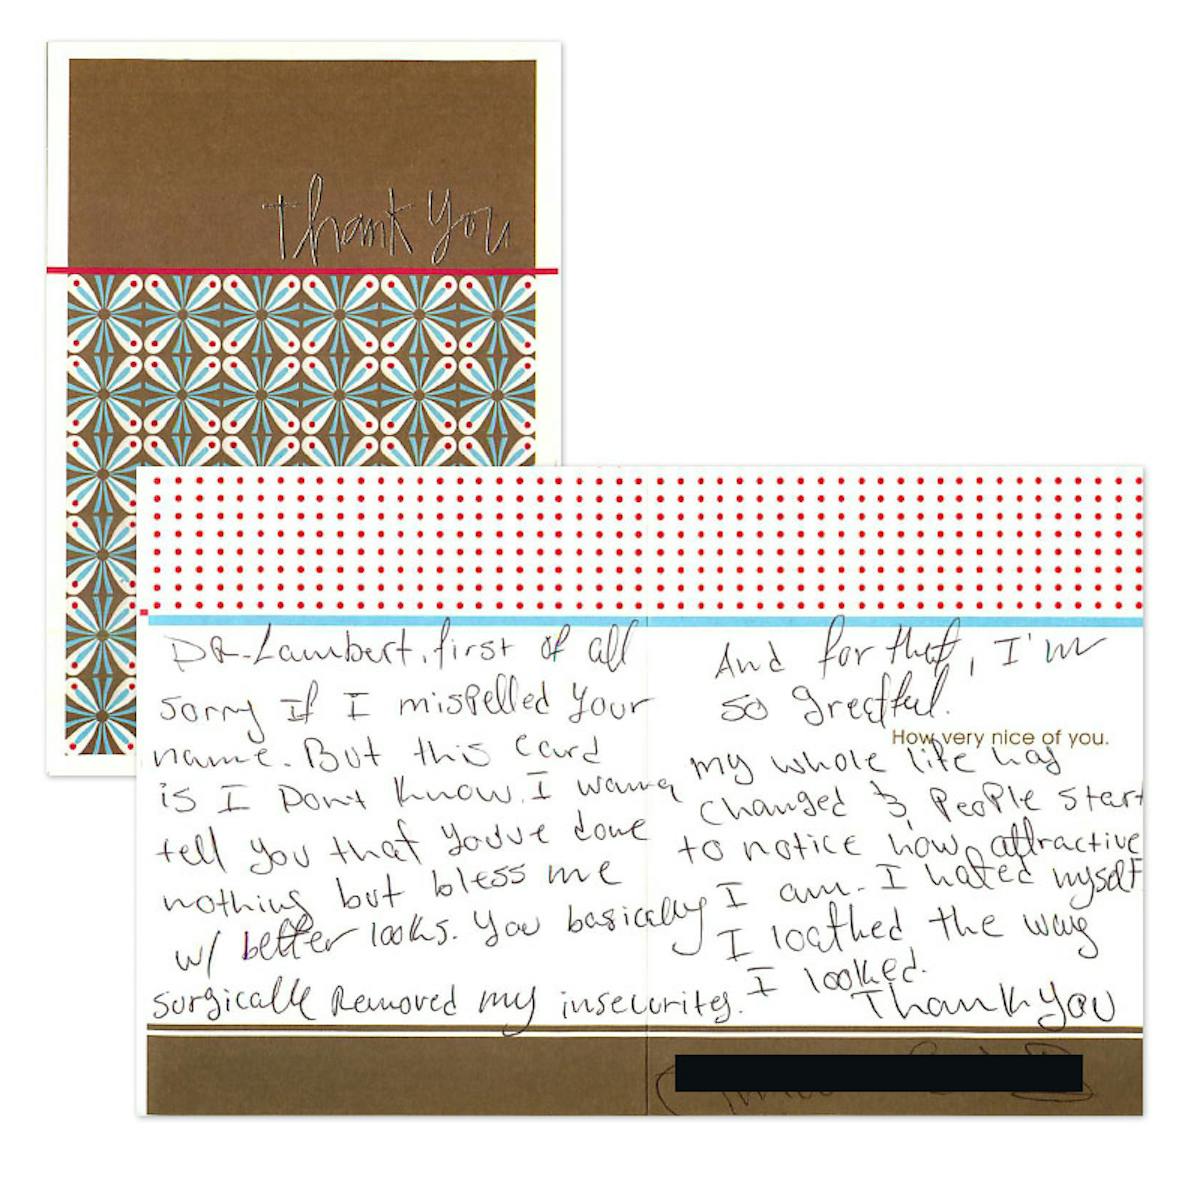 thank you
DR. Lambert, first of all
sorry If I mispelled your
name. But this card
is I Dont know. I wanna
tell you that you've done
nothing but bless me
w/ better looks. You basically
surgicalle Removed my insecurites.
And for that, I'm
so greatful.
How very nice of you.
my whole life has
changed & People start
to notice how attractive
I am. I hated myself
I loathed the way
I looked.
Thank you